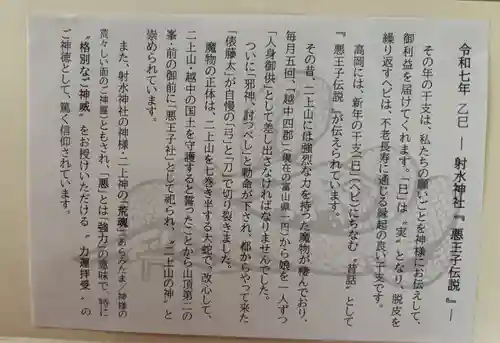 令和七年 乙巳 ― 射水神社『悪王子伝説』―
その年の干支は、私たちの願いごとを神様にお伝えして、
御利益を届けてくれます。「巳」は〝実〟となり、脱皮を
繰り返すヘビは、不老長寿に通じる縁起の良い干支です。
高岡には、新年の干支「巳」（ヘビ）にちなむ〝昔話〟として
『悪王子伝説』が伝えられています。
その昔、二上山には強烈な力を持った魔物が棲んでおり、
毎月五回、「越中四郡」（現在の富山県一円）から娘を一人ずつ
「人身御供」として差し出さなければなりませんでした。
ついに「邪神、討つべし」と勅命が下され、都からやって来た
「俵藤太」が自慢の「弓」と「刀」で切り裂きました。
魔物の正体は、二上山を七巻き半する大蛇で、改心して、
二上山・越中の国土を守護すると誓ったことから山頂第二の
峯・前の御前に「悪王子社」として祀られ、〝二上山の神〟と
崇められています。
また、射水神社の神様・二上神の「荒魂」（あらみたま／神様の
荒々しい面のご神霊）ともされ、「悪」とは「強力」の意味で、特に
〝格別なご神威〟をお授けいただける〝力運拝受〟の
ご神徳として、篤く信仰されています。